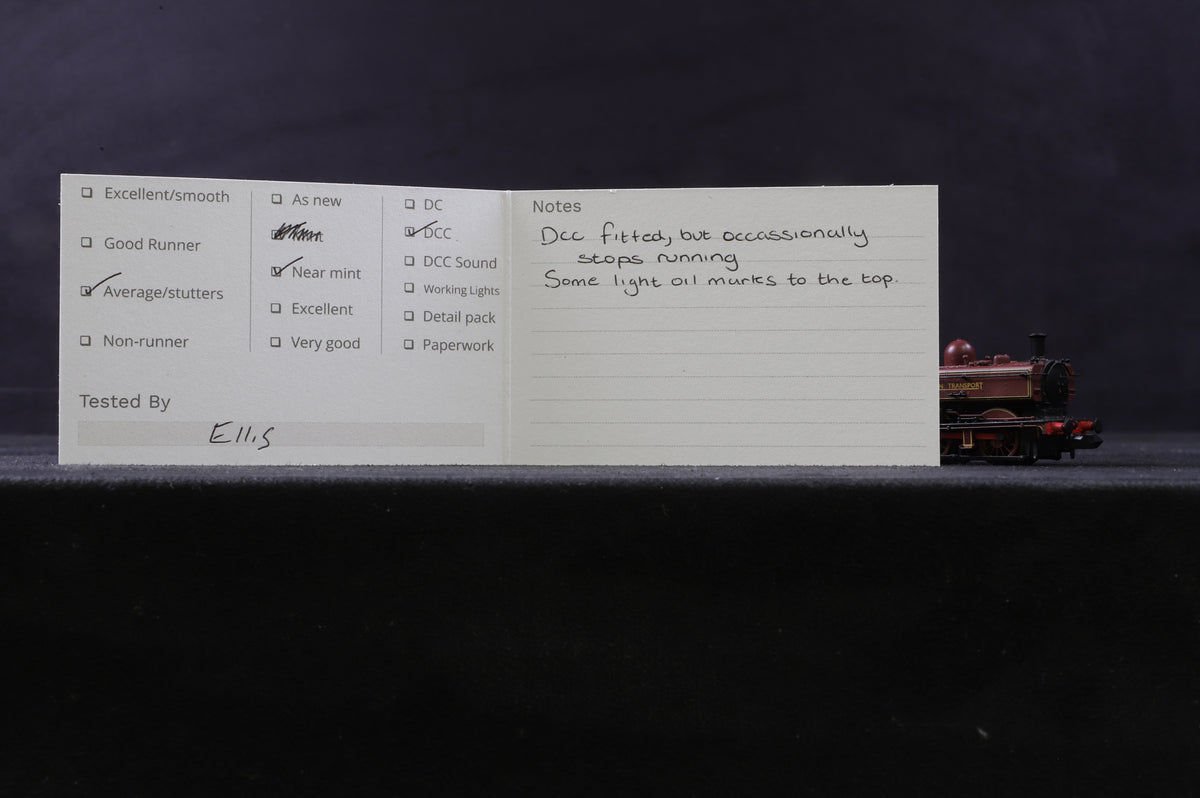 Excellent/smooth
Good Runner
Average/stutters
Non-runner
As new
Near mint
Excellent
Very good
DC
DCC
DCC Sound
Working Lights
Detail pack
Paperwork
Tested By
Ellis
Notes
Dcc fitted, but occassionally
stops running
Some light oil marks to the top.
TRANSPORT